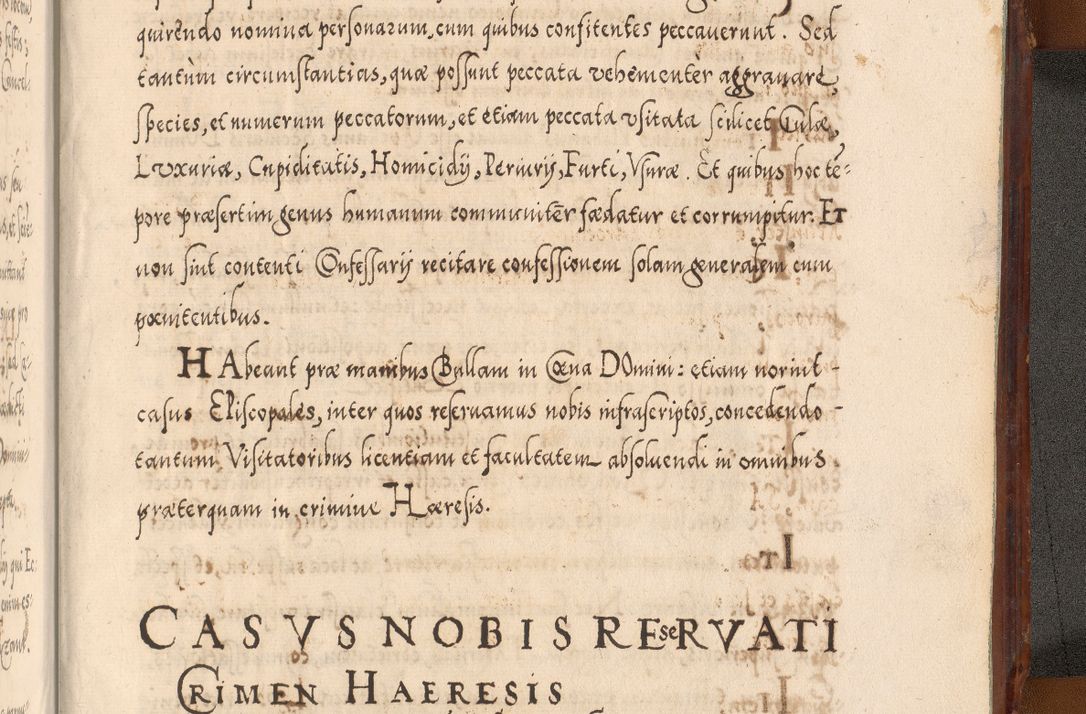 quirendo nomina personarum, cum quibus confitentes peccauerunt. Sed
tantùm circumstantias, quæ possunt peccata vehementer aggrauare,
species, et numerum peccatorum, et etiam peccata vsitata scilicet Gulæ,
Lvxuriæ, Cupiditatis, Homicidij, Periurij, Furti, Vsuræ. Et quibus hoc tē-
pore præsertim genus humanum communitēr fædatur et corrumpitur. Et
non sint contenti Confessarij recitare confessionem solam generalem cum
pœnitentibus.
HAbeant præ manibus Bullam in Cœna DOmini: etiam norint
casus EPiscopales, inter quos reseruamus nobis infrascriptos, concedendo
tantum Visitatoribus licentiam et facultatem absoluendi in omnibus
præterquam in crimine Hæresis.
CASVS NOBIS REseRVATI
CRIMEN HAERESIS